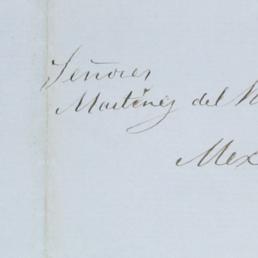 Señores
Martinez del